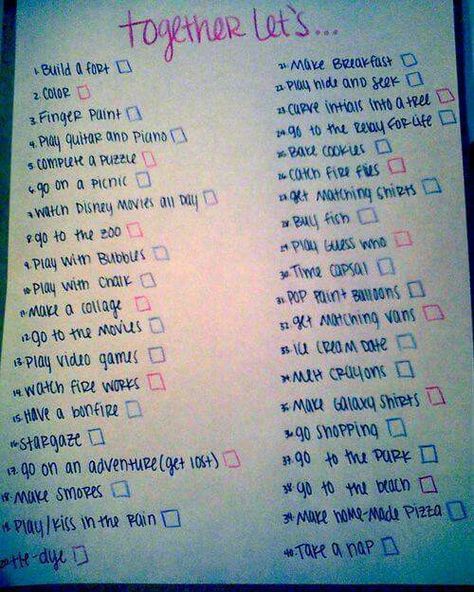 Together Let's...
1. Build a fort
2. Color
3. Finger Paint
4. Play guitar and Piano
5 complete a puzzle
6. go on a picnic
7. Watch Disney Movies all Day
8. go to the zoo
9. Play with Bubbles
10. Play with chalk
11. Make a collage
12. go to the movies
13. Play video games
14. watch fire works
15. Have a bonfire
16. stargaze
17. go on an adventure (get lost)
18. Make smores
19. Play/kiss in the rain
20. tie-dye
21. Make Breakfast
22. Play hide and seek
23. curve intials into a tree
24. go to the Relay For Life
25. Bake cookies
26. catch fire flies
27. get matching shirts
28. Buy fish
29. Play Guess who
30. Time capsal
31. POP Paint Balloons
32. get matching vans
33. Ice cream date
34. Melt crayons
35. Make Galaxy shirts
36. go shopping
37. go to the park
38. go to the beach
39. Make home-made Pizza
40. Take a nap